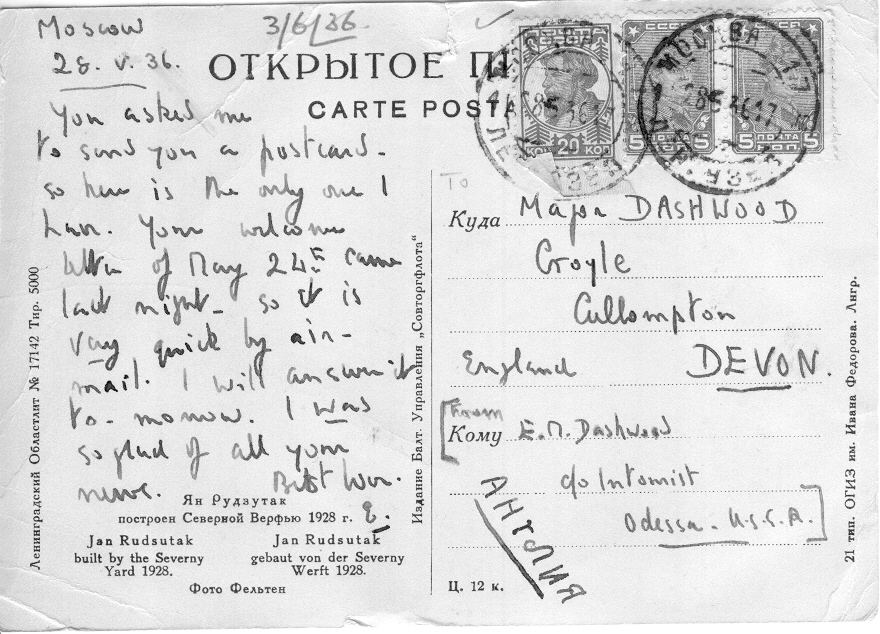 Moscow
28. V. 36.
3/6/36.
ОТКРЫТОЕ П
CARTE POSTA
You asked me
to send you a postcard -
so here is the only one I
have. Your welcome
letter of May 24th came
last night - so it is
very quick by air-
mail. I will answer it
to-morrow. I was
so glad of all your
news. Best love.
E.
Ян Рудзутак
построен Северной Верфью 1928 г.
Jan Rudsutak
built by the Severny
Yard 1928.
Jan Rudsutak
gebaut von der Severny
Werft 1928.
Фото Фельтен
Ленинградский Областлит № 17142 Тир. 5000
Издание Балт. Управления „Совторгфлота"
МОСКВА
20 КОП
СССР
ПОЧТА
5 КОП. 5
СССР
ПОЧТА
5 КОП. 5
МОСКВА 17
TO
Куда Маjor DASHWOOD
Croyle
Cullompton
England DEVON.
From
Кому E.M. Dashwood
c/o Intourist
Odessa - U.S.S.R.
АНГЛИЯ
Ц. 12 к.
21 тип. ОГИЗ им. Ивана Федорова. Лнгр.